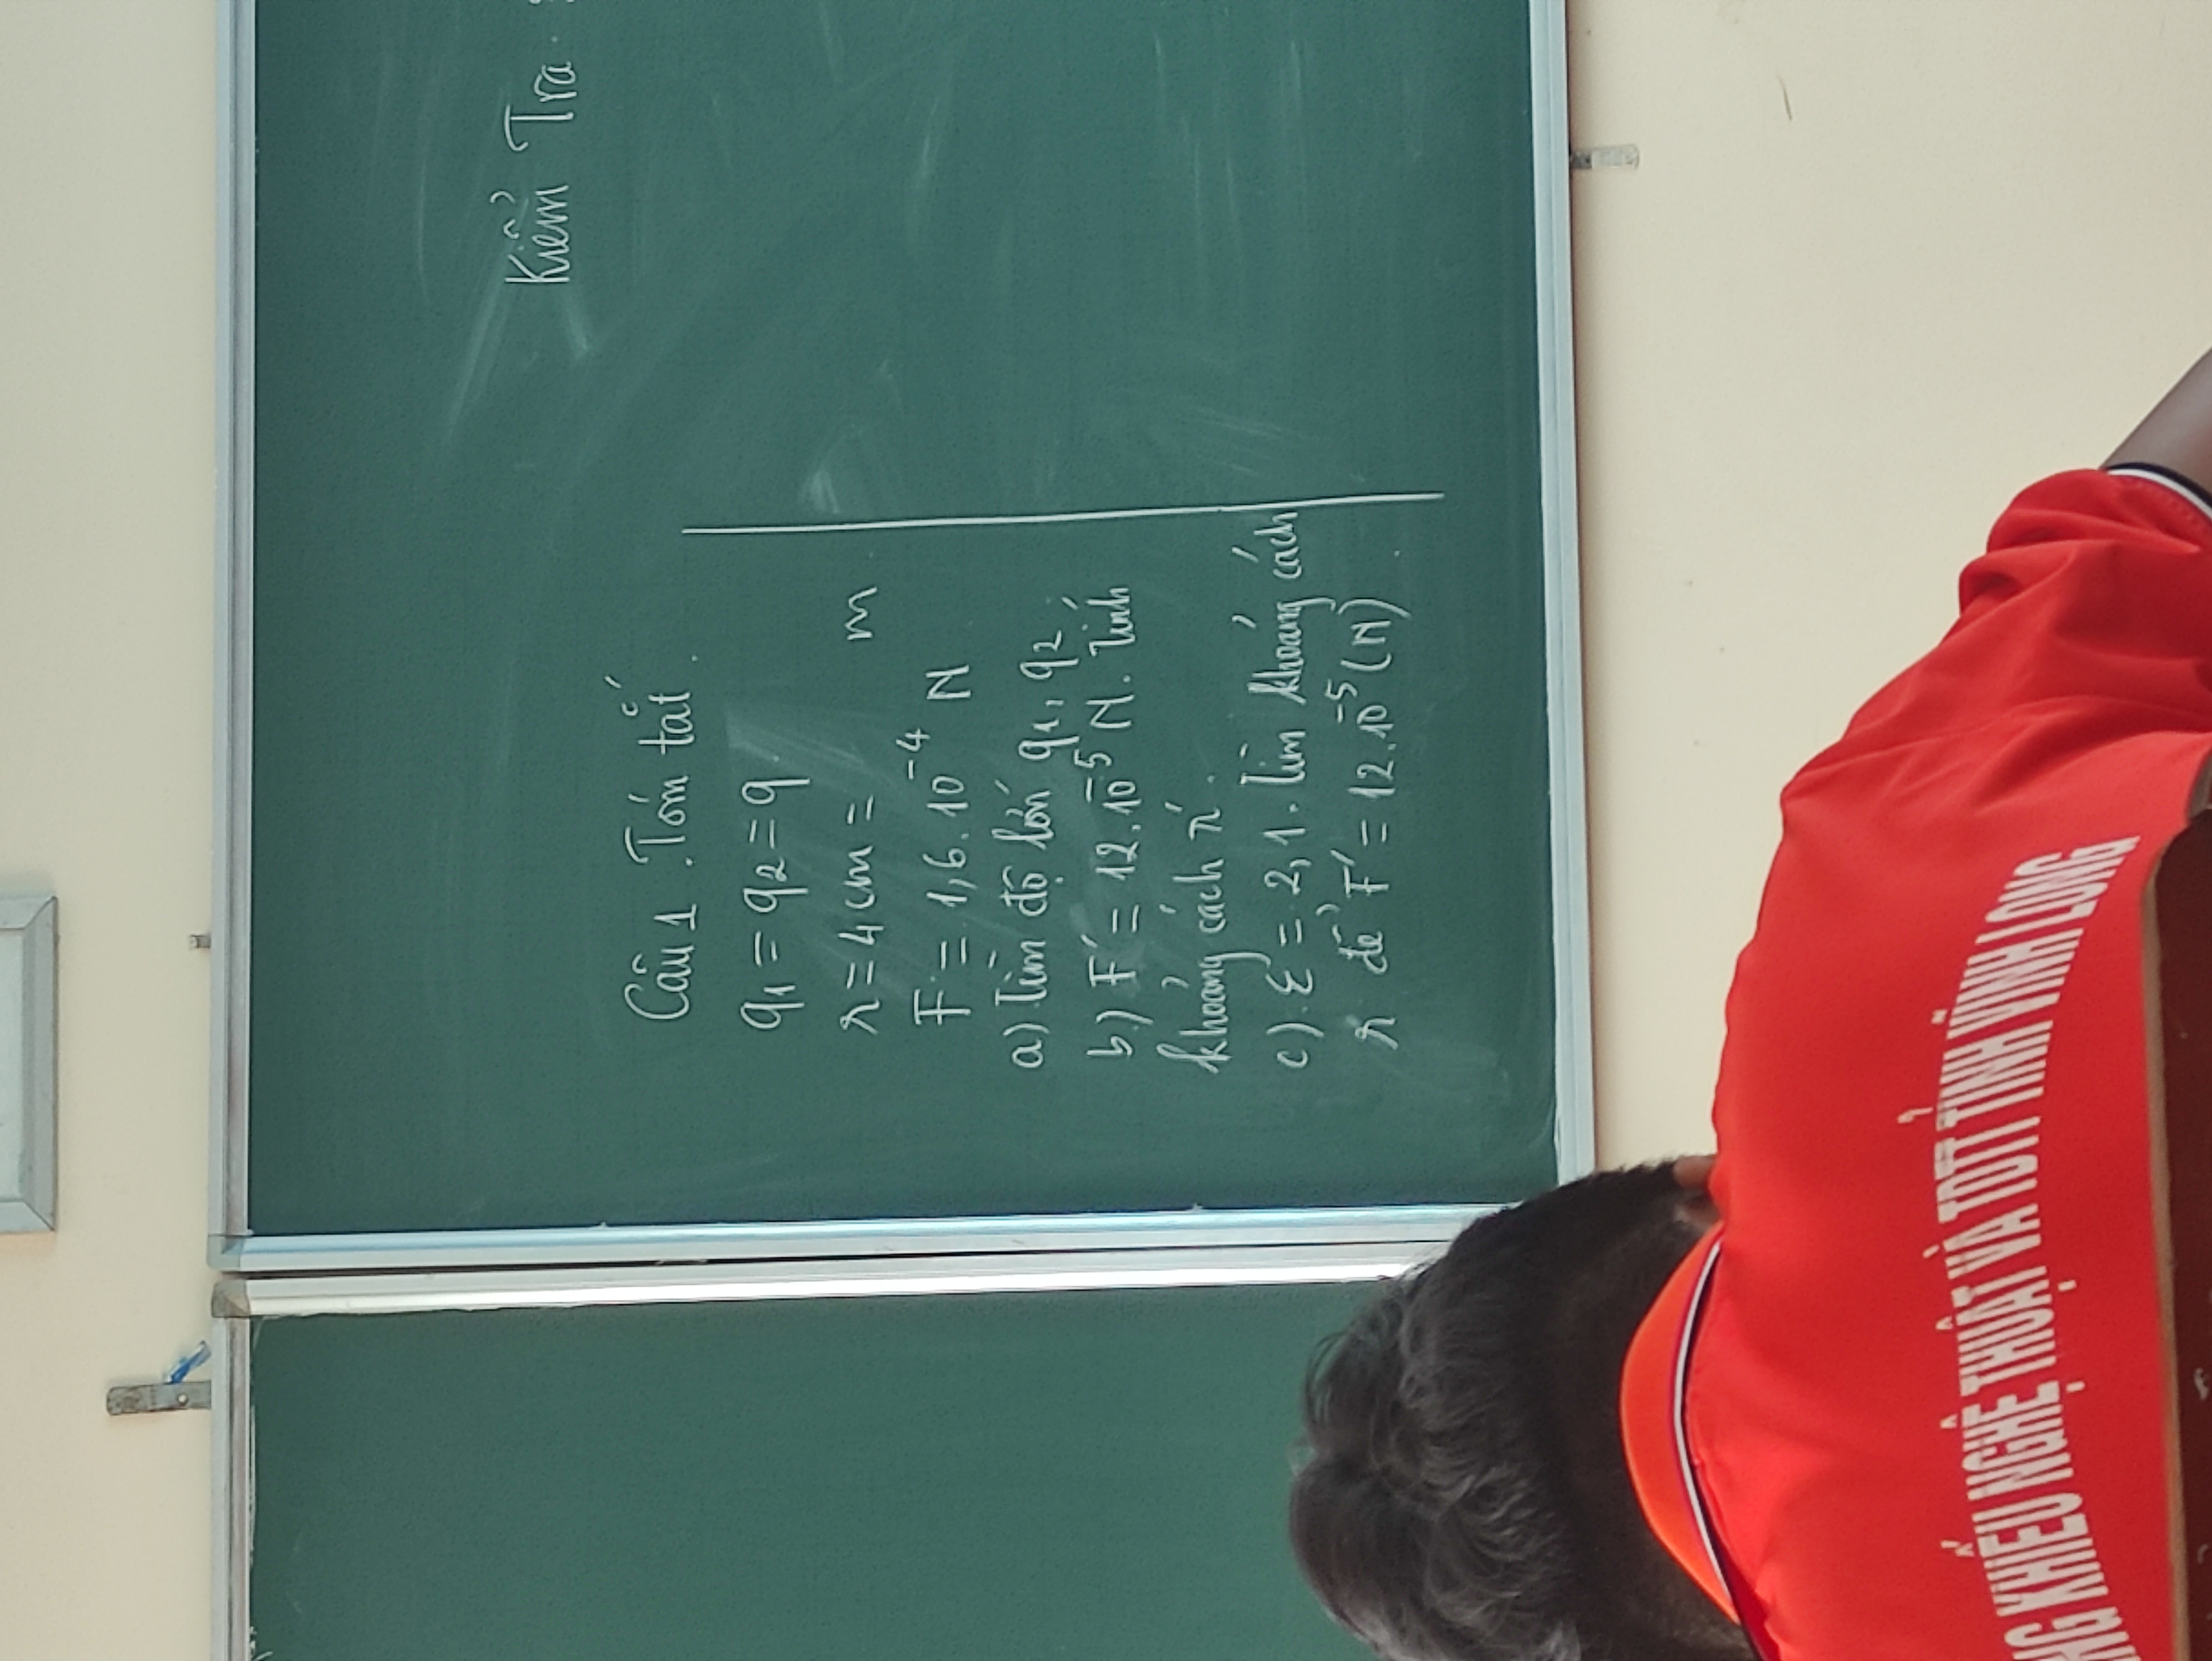 Kiểm Tra
Câu 1. Tóm tắt.
q1 = q2 = q
r = 4 cm = m
F = 1,6.10^-4 N
a) Tìm độ lớn q1, q2
b.) F' = 12.10^-5 N. Tính
khoảng cách r'.
c). ε = 2,1. Tìm khoảng cách
r để F' = 12.10^-5 (N)
KHIẾU NGHỆ THUẬT VÀ TDTT TỈNH VĨNH LONG